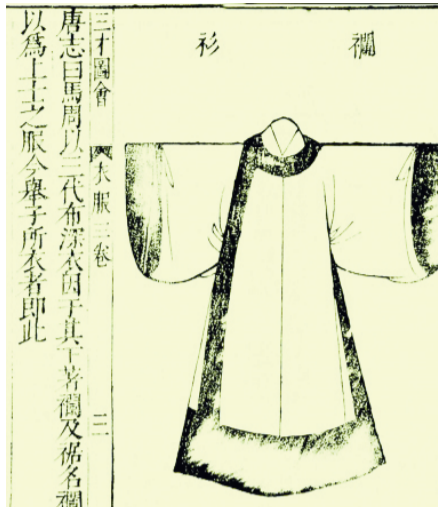 襴衫
三才圖會 衣服三卷
唐志曰馬周以三代布深衣因于其下著襴及裾名襴
以爲上士之服今舉子所衣者即此